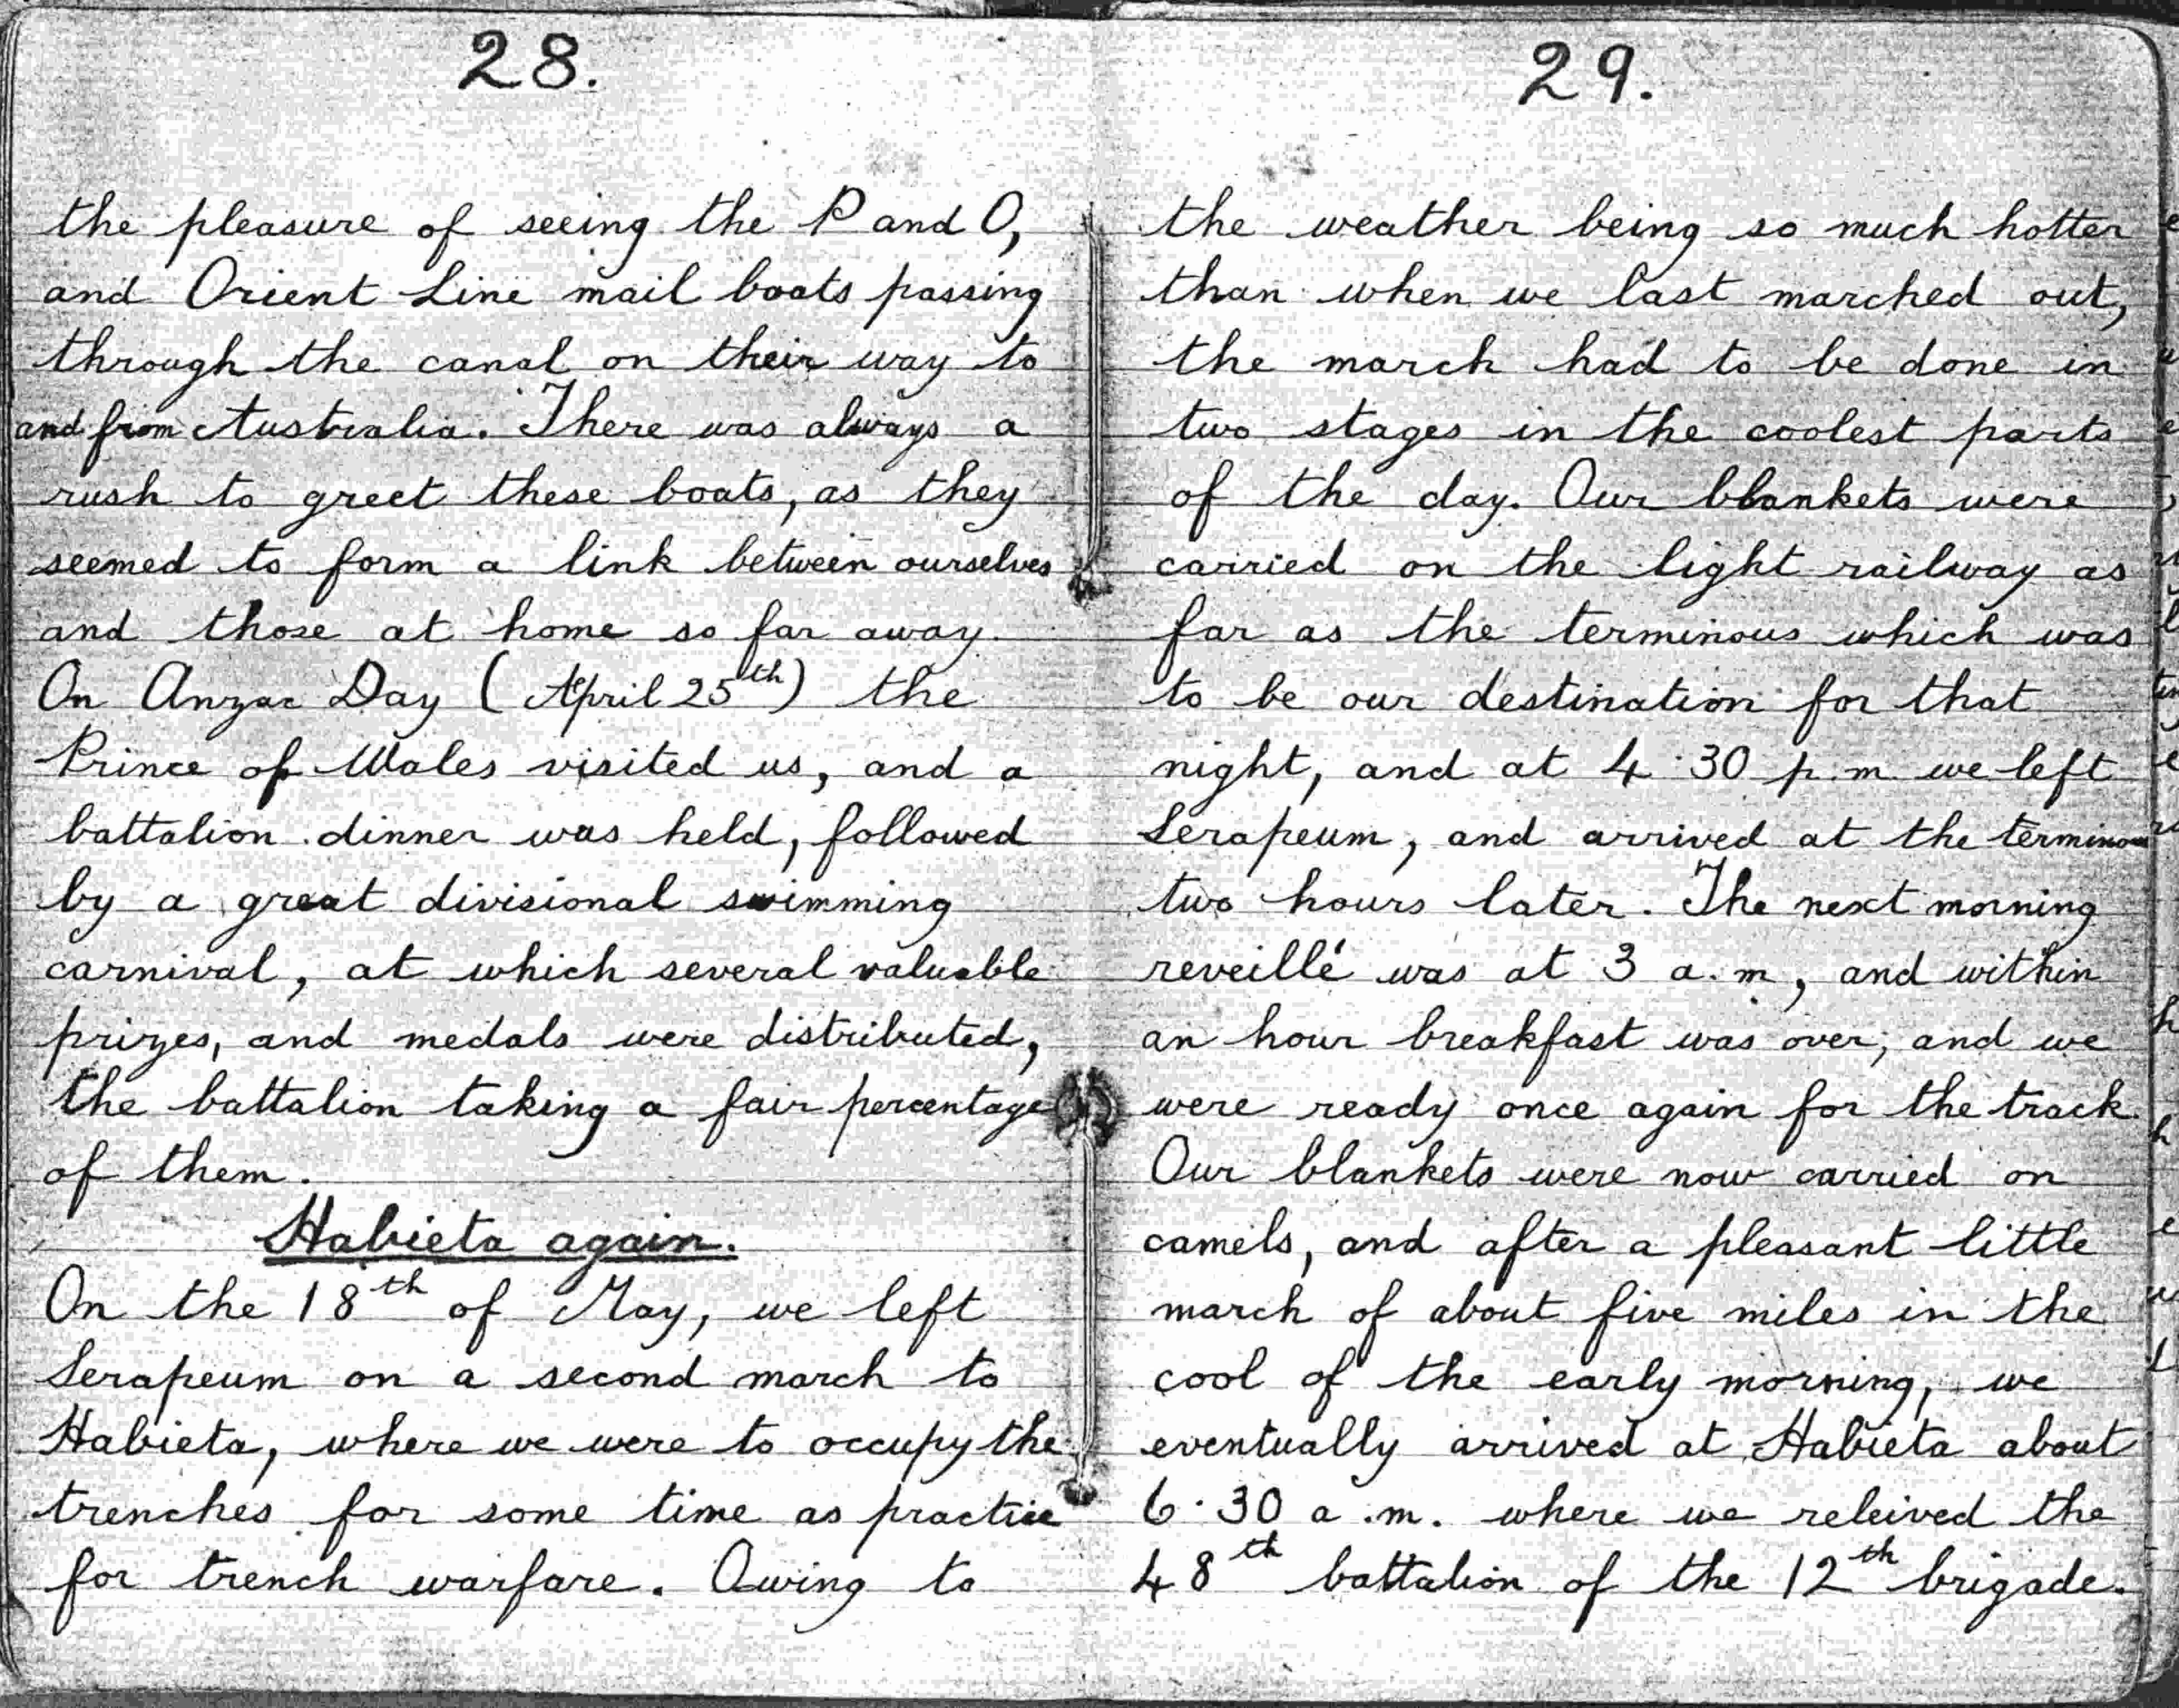 28.
the pleasure of seeing the P and O,
and Orient Line mail boats passing
through the canal on their way to
and from Australia. There was always a
rush to greet these boats, as they
seemed to form a link between ourselves
and those at home so far away.
On Anzac Day (April 25th) the
Prince of Wales visited us, and a
battalion dinner was held, followed
by a great divisional swimming
carnival, at which several valuable
prizes, and medals were distributed,
the battalion taking a fair percentage
of them.
Habieta again.
On the 18th of May, we left
Serapeum on a second march to
Habieta, where we were to occupy the
trenches for some time as practice
for trench warfare. Owing to
29.
the weather being so much hotter
than when we last marched out,
the march had to be done in
two stages in the coolest parts
of the day. Our blankets were
carried on the light railway as
far as the terminous which was
to be our destination for that
night, and at 4.30 p.m. we left
Serapeum, and arrived at the terminous
two hours later. The next morning
reveillé was at 3 a.m, and within
an hour breakfast was over, and we
were ready once again for the track.
Our blankets were now carried on
camels, and after a pleasant little
march of about five miles in the
cool of the early morning, we
eventually arrived at Habieta about
6.30 a.m. where we releived the
48th battalion of the 12th brigade.